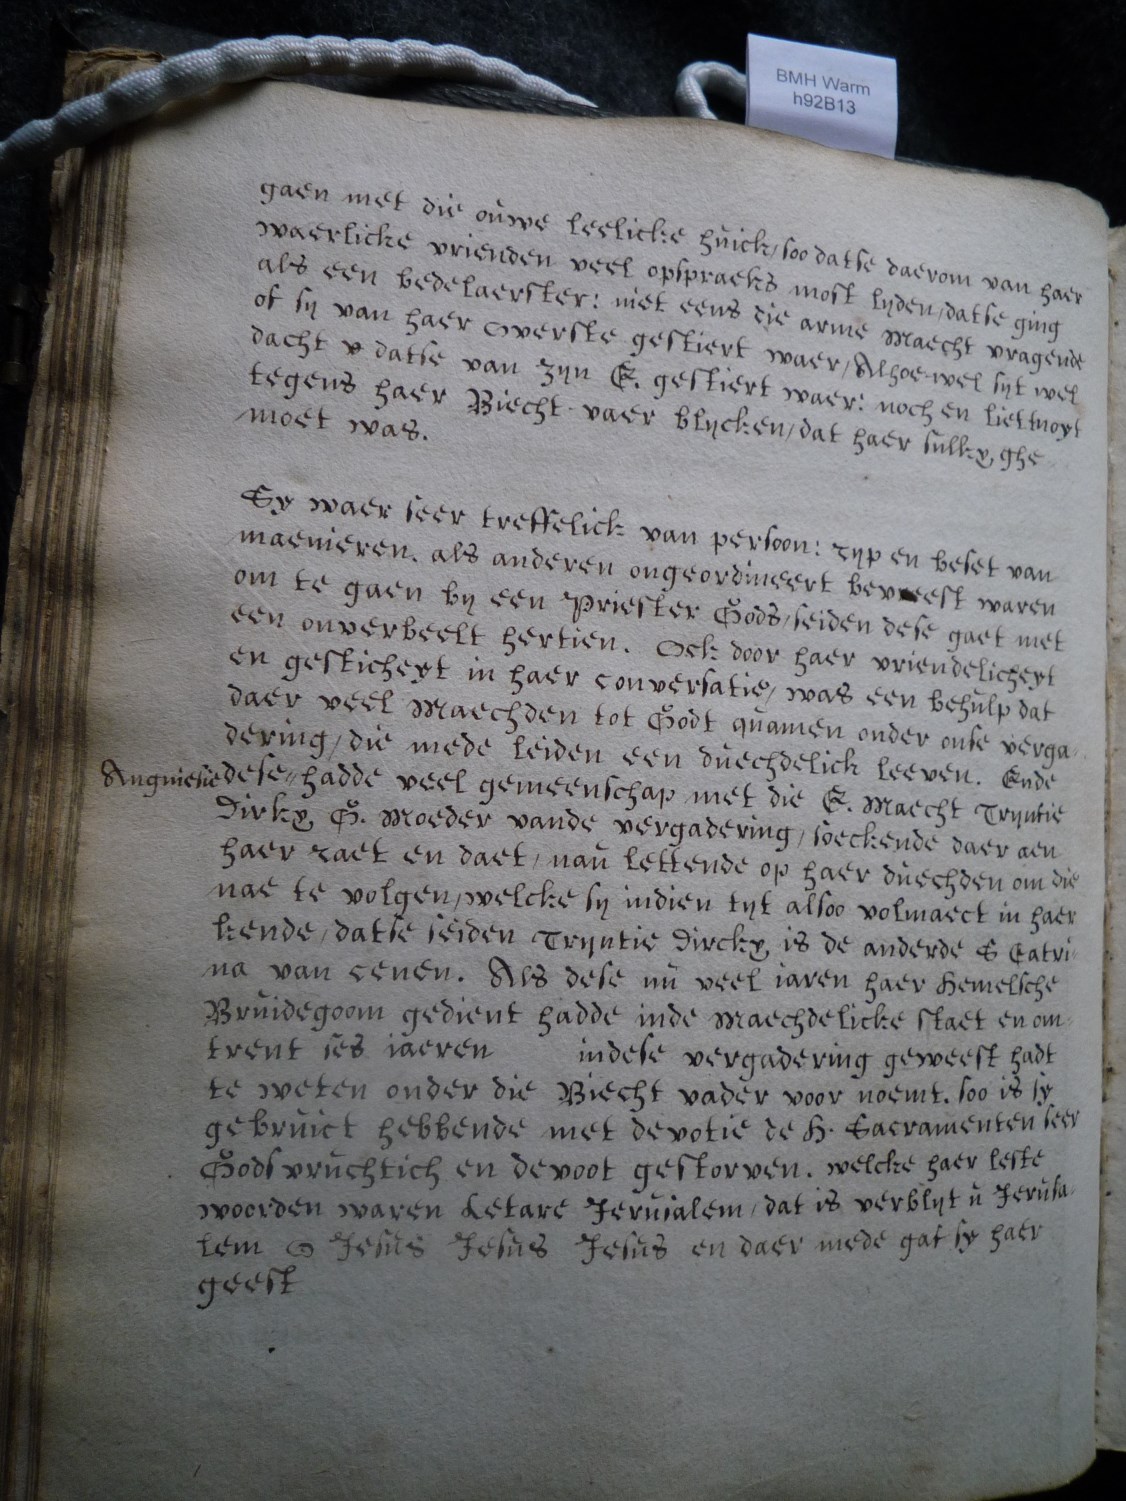 BMH Warm
h92B13
gaen met die oúwe leelicke húick/soo datse daerom van haer
waerlicke vrienden veel opspraeks most lyden/datse ging
als een bedelaerster: niet eens die arme Maecht vragende
of sij van haer Overste gestiert waer/Alhoe-wel sijt wel
dacht datse van zijn E. gestiert waer: noch en liet noyt
tegens haer Biecht-vaer blijcken/dat haer súlkx ghe
moet was.
Sy waer seer treffelick van persoon: rijp en beset van
maenieren. als anderen ongeordineert bevreest waren
om te gaen bij een Priester Gods/seiden dese gaet met
een onverbeelt hertien. Ock door haer vriendelicheyt
en gesticheyt in haer conversatie/ was een behúlp dat
daer veel Maechden tot Godt quamen onder onse verga-
dering/die mede leiden een dúechdelick leeven. Ende
Angniesie dese hadde veel gemeenschap met die E. Maecht Trijntie
Dirkx G. Moeder vande vergadering/soeckende daer aen
haer raet en daet/naú lettende op haer dúechden om die
nae te volgen/welcke sij indien tijt alsoo volmaect in haer
kende/datse seiden Trijntie Dirckx is de anderde S Catri-
na van cenen. Als dese nú veel iaren haer Hemelsche
Brúidegoom gedient hadde inde Maechdelicke staet en om-
trent ses iaeren indese vergadering geweest hadt
te weten onder die Biecht vader voor noemt. soo is sy
gebrúict hebbende met devotie de H. Sacramenten seer
Godsvrúchtich en devoot gestorven. welcke haer leste
woorden waren Letare Jerúsalem/dat is verblijt ú Jerúsa-
lem O Jesús Jesús Jesús en daer mede gaf sy haer
geest